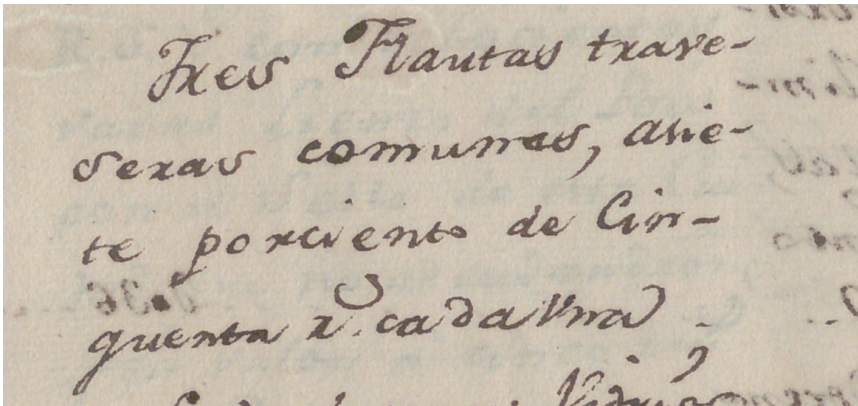 Tres Flautas trave-
seras comunes, asie-
te porciento de Cin-
quenta r.^s cada Vna